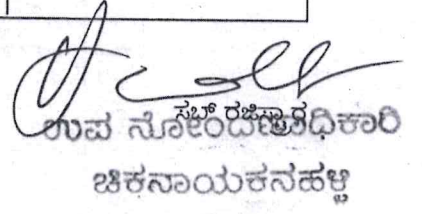 ಸಬ್ ರಜಿಸ್ಟ್ರಾರ
ಉಪ ನೋಂದಣಾಧಿಕಾರಿ
ಚಿಕನಾಯಕನಹಳ್ಳಿ